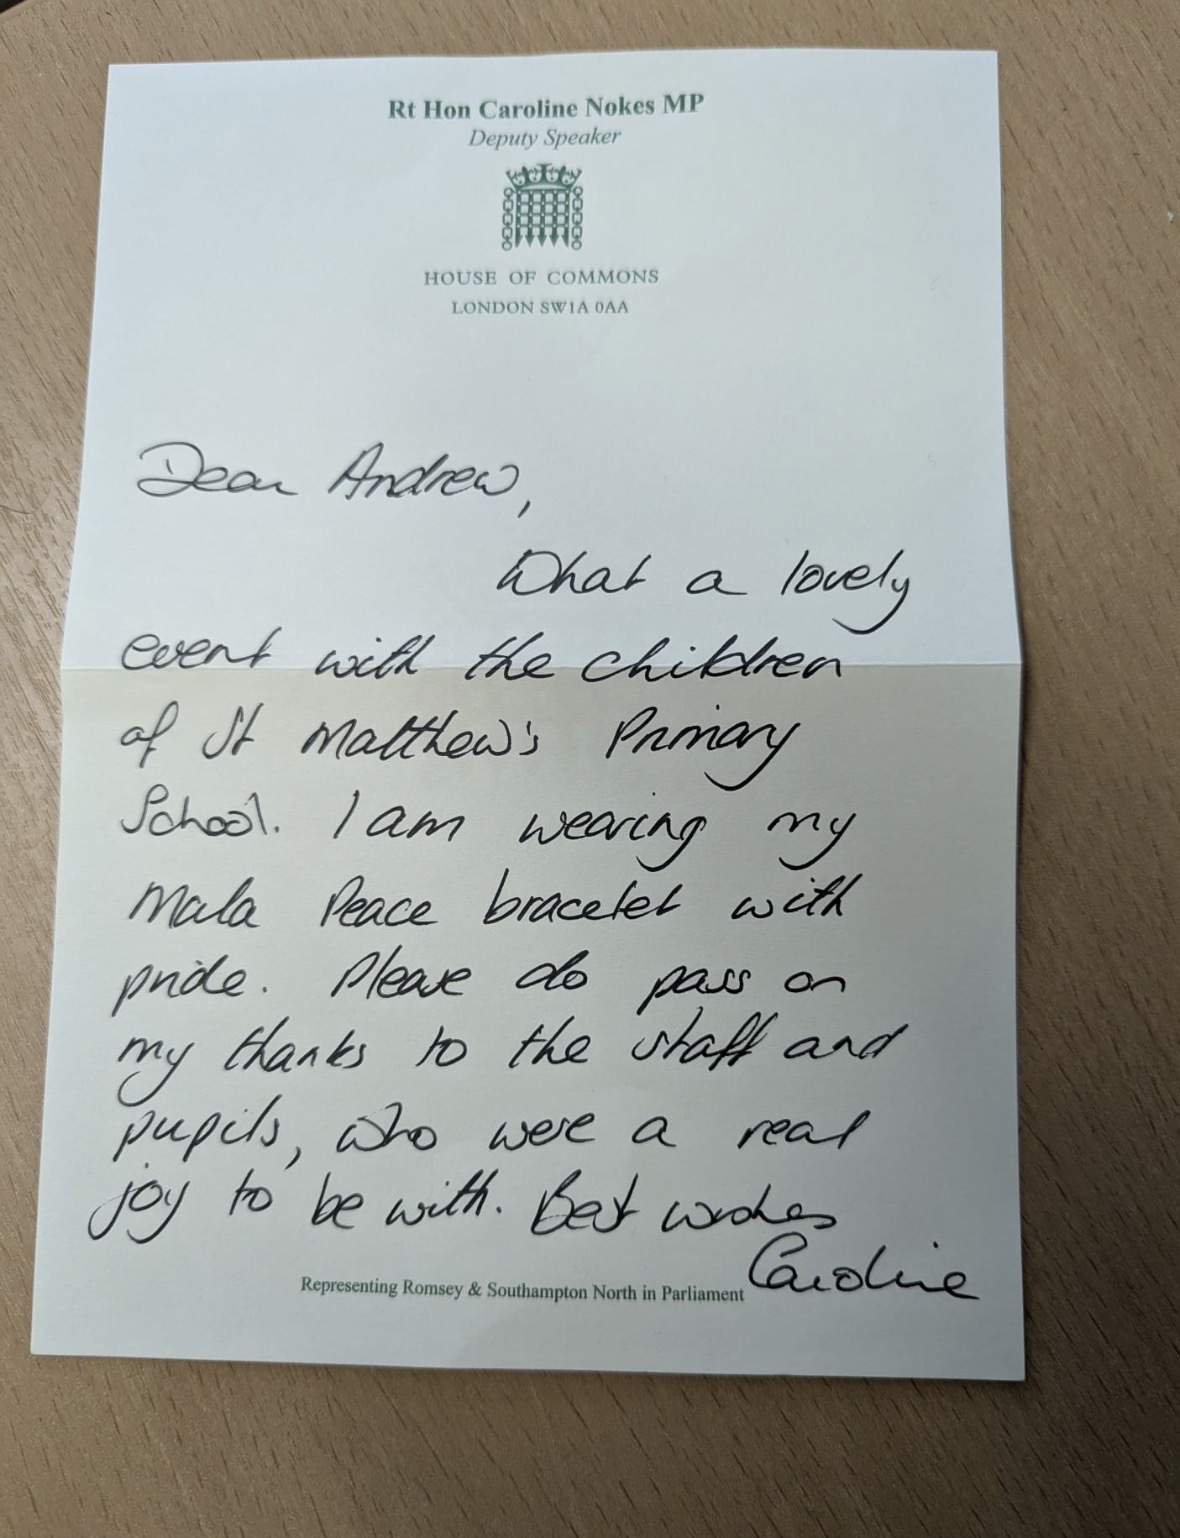 Rt Hon Caroline Nokes MP
Deputy Speaker
HOUSE OF COMMONS
LONDON SW1A 0AA
Dear Andrew,
What a lovely
event with the children
of St Matthew's Primary
School. I am wearing my
Mala Peace bracelet with
pride. Please do pass on
my thanks to the staff and
pupils, who were a real
joy to be with. Best wishes
Caroline
Representing Romsey & Southampton North in Parliament